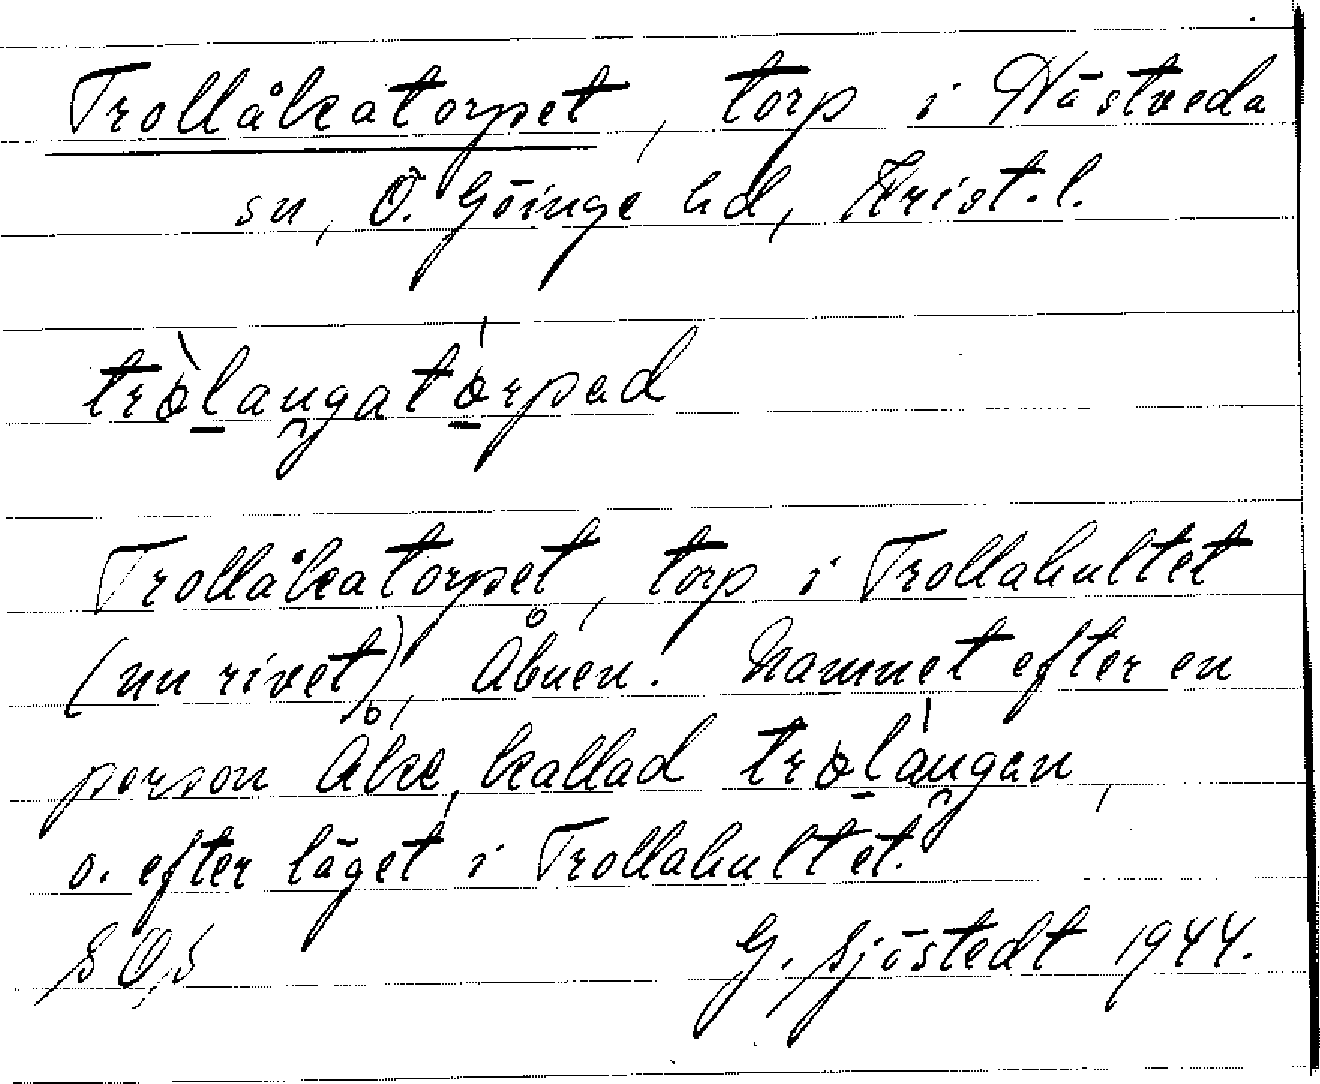 Trollåkatorpet, torp i Nästveda
sn, Ö. Göinge hd, Krist. l.
tròlaugatórpad
Trollåkatorpet, torp i Trollahultet
(nu rivet), Åbuen. Namnet efter en
person Åke, kallad trolàugen,
o. efter läget i Trollahultet.
G. Sjöstedt 1944.